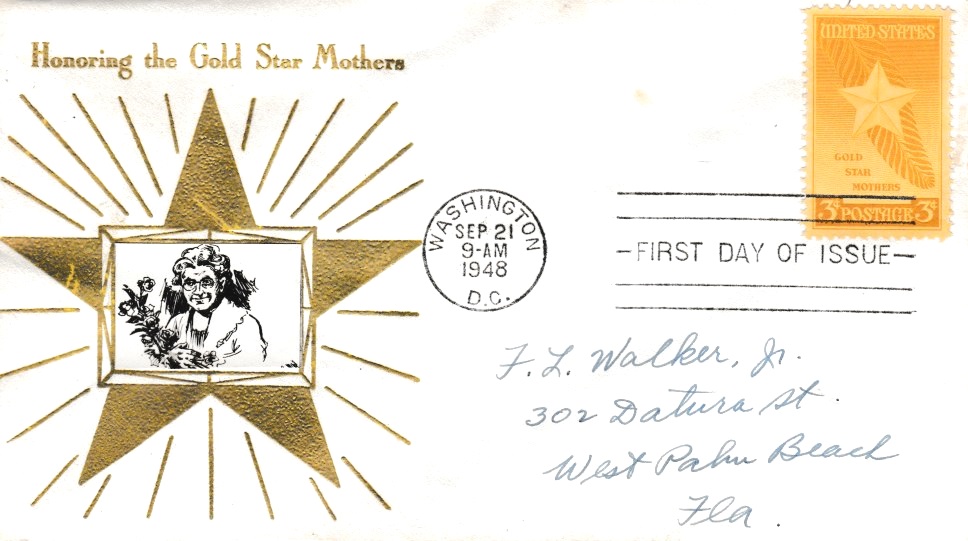 Honoring the Gold Star Mothers
UNITED STATES
GOLD
STAR
MOTHERS
3¢ POSTAGE 3¢
WASHINGTON
SEP 21
9-AM
1948
D.C.
FIRST DAY OF ISSUE
F. L. Walker, Jr.
302 Datura St.
West Palm Beach
Fla.